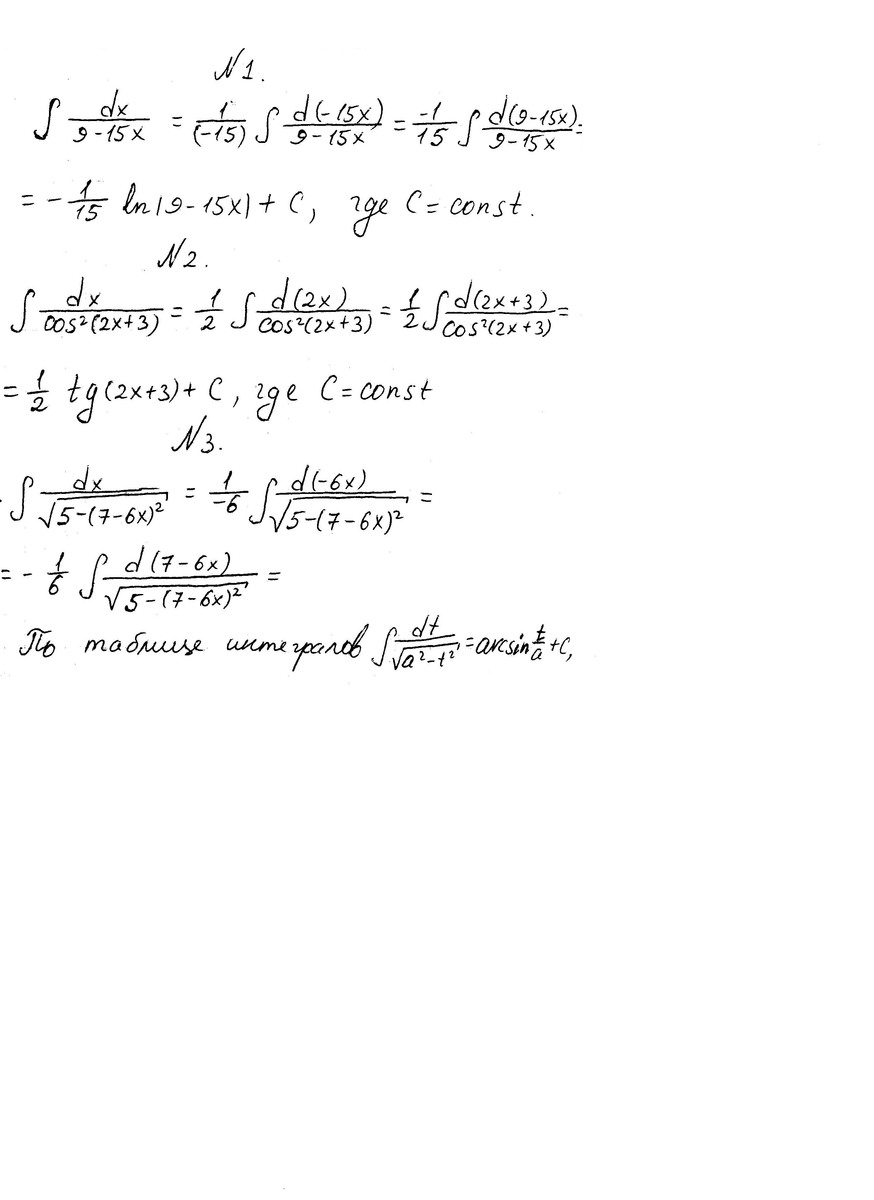 N 1.
∫ dx/(9-15x) = 1/(-15) ∫ d(-15x)/(9-15x) = -1/15 ∫ d(9-15x)/(9-15x) =
= - 1/15 ln|9-15x| + C, где C = const.
N 2.
∫ dx/cos²(2x+3) = 1/2 ∫ d(2x)/cos²(2x+3) = 1/2 ∫ d(2x+3)/cos²(2x+3) =
= 1/2 tg(2x+3) + C, где C = const
N 3.
∫ dx/√(5-(7-6x)²) = 1/-6 ∫ d(-6x)/√(5-(7-6x)²) =
= - 1/6 ∫ d(7-6x)/√(5-(7-6x)²) =
По таблице интегралов ∫ dt/√(a²-t²) = arcsin t/a + C,